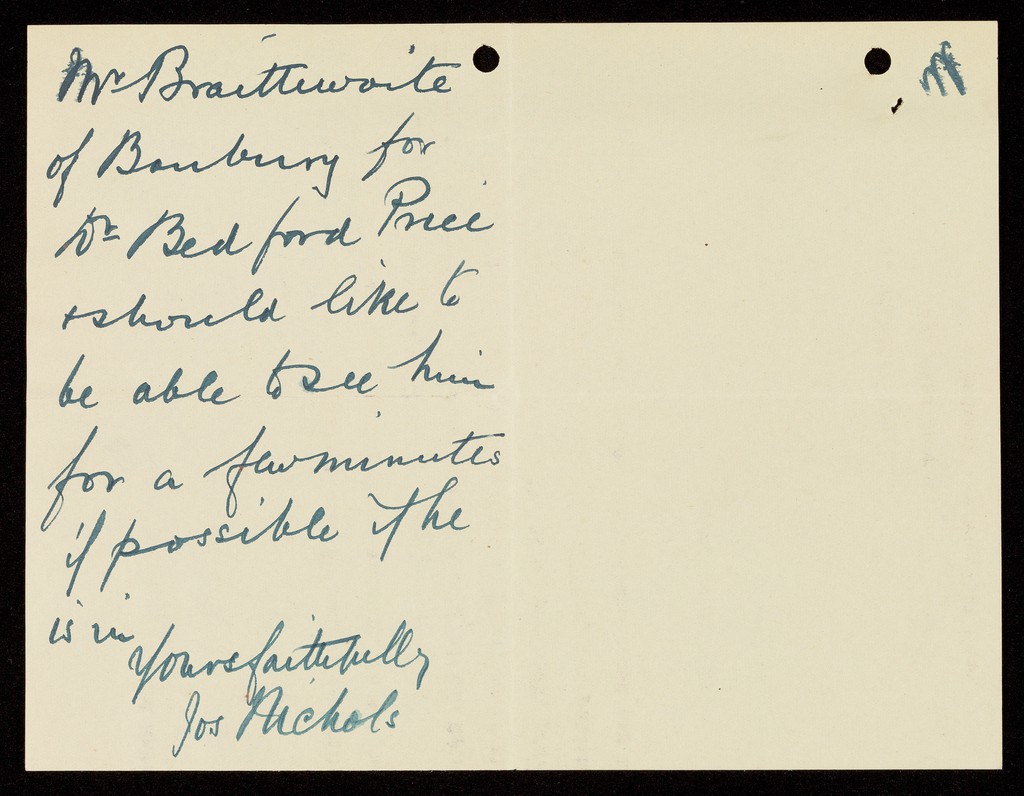 Mr Braithwaite
of Banbury for
Dr Bedford Price
+ should like to
be able to see him
for a few minutes
if possible if he
is in
Yours faithfully
Jos Nichols